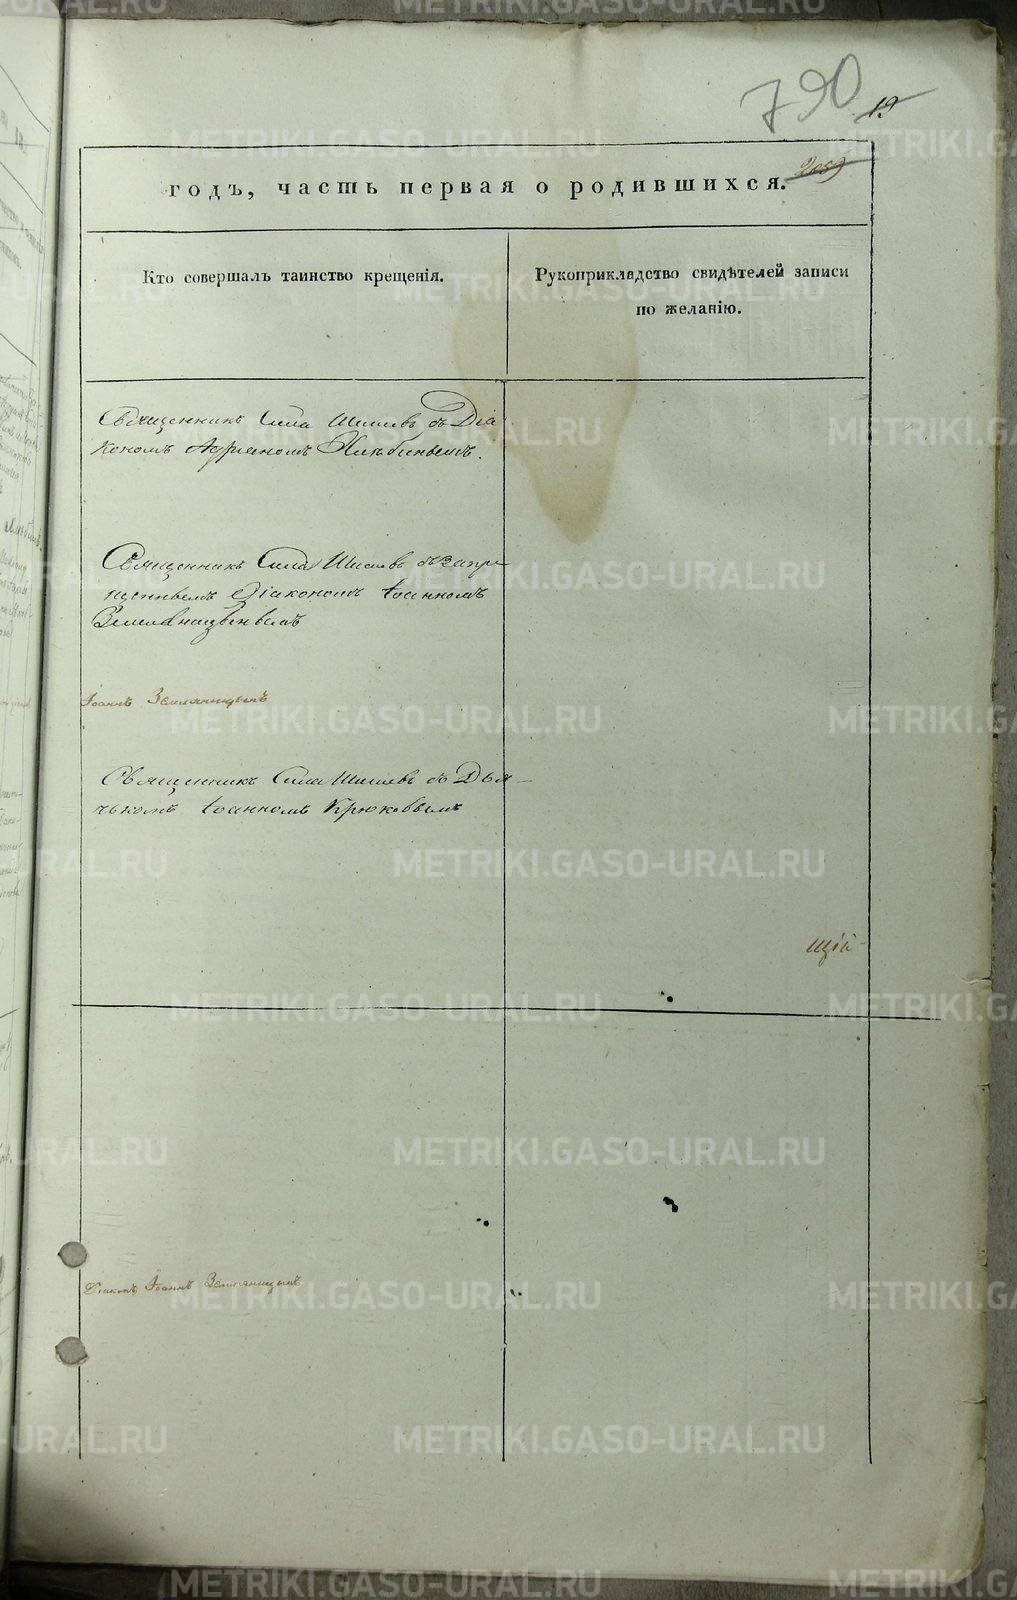 790
19
2059
годъ, часть первая о родившихся.
Кто совершалъ таинство крещенія.
Рукоприкладство свидѣтелей записи
по желанію.
Священникъ Сила Шишевъ съ Діа
кономъ Адріаномъ Хлѣбинымъ.
Священникъ Сила Шишевъ съ запре
щеннымъ Діакономъ Іоанномъ
Земляницынымъ
Іоаннъ Земляницынъ
Священникъ Сила Шишевъ съ Дья-
чькомъ Іоанномъ Крюковымъ
щій
Діаконъ Іоаннъ Земляницынъ
METRIKI.GASO-URAL.RU